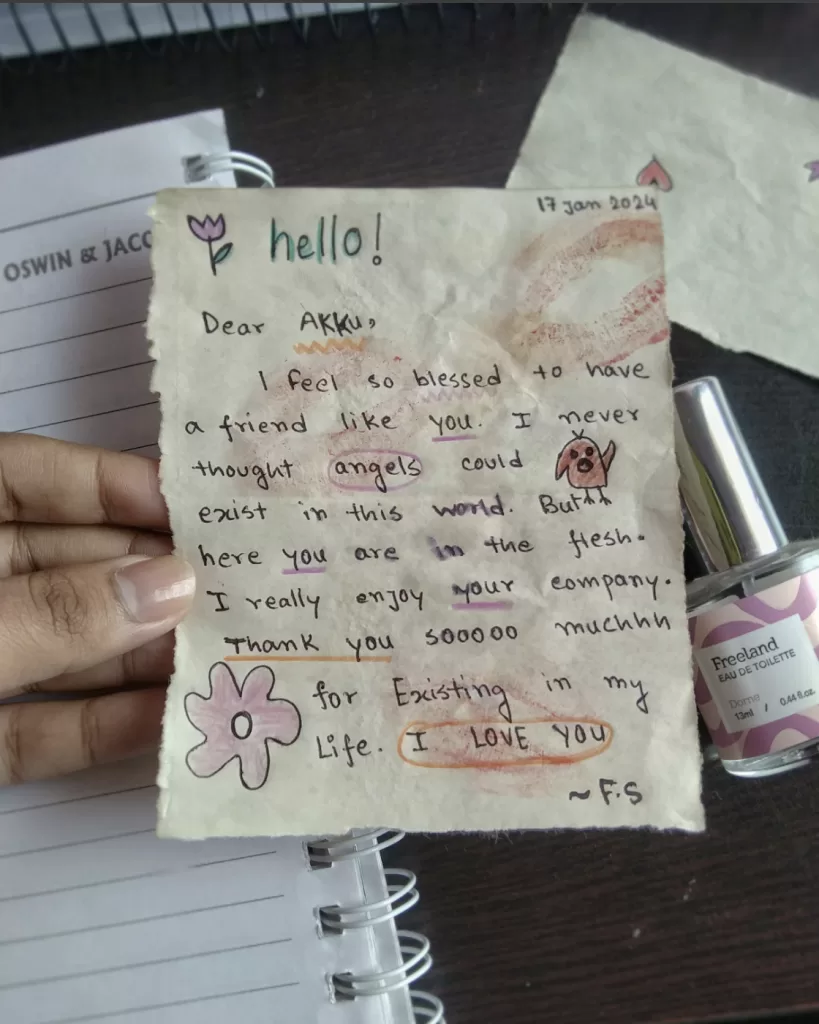 17 Jan 2024
hello!
Dear AKKU,
I feel so blessed to have
a friend like you. I never
thought angels could
exist in this world. But
here you are in the flesh.
I really enjoy your company.
Thank you sooooo muchhh
for Existing in my
Life. I LOVE YOU
~ F.S
OSWIN & JACO
Freeland
EAU DE TOILETTE
Dome
13ml / 0.44 fl.oz.